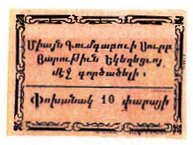 Միայն Գումգաբուի Սուրբ
Յարութիւն Եկեղեցւոյ
մէջ գործածելի .
Փոխանակ 10 փարայի